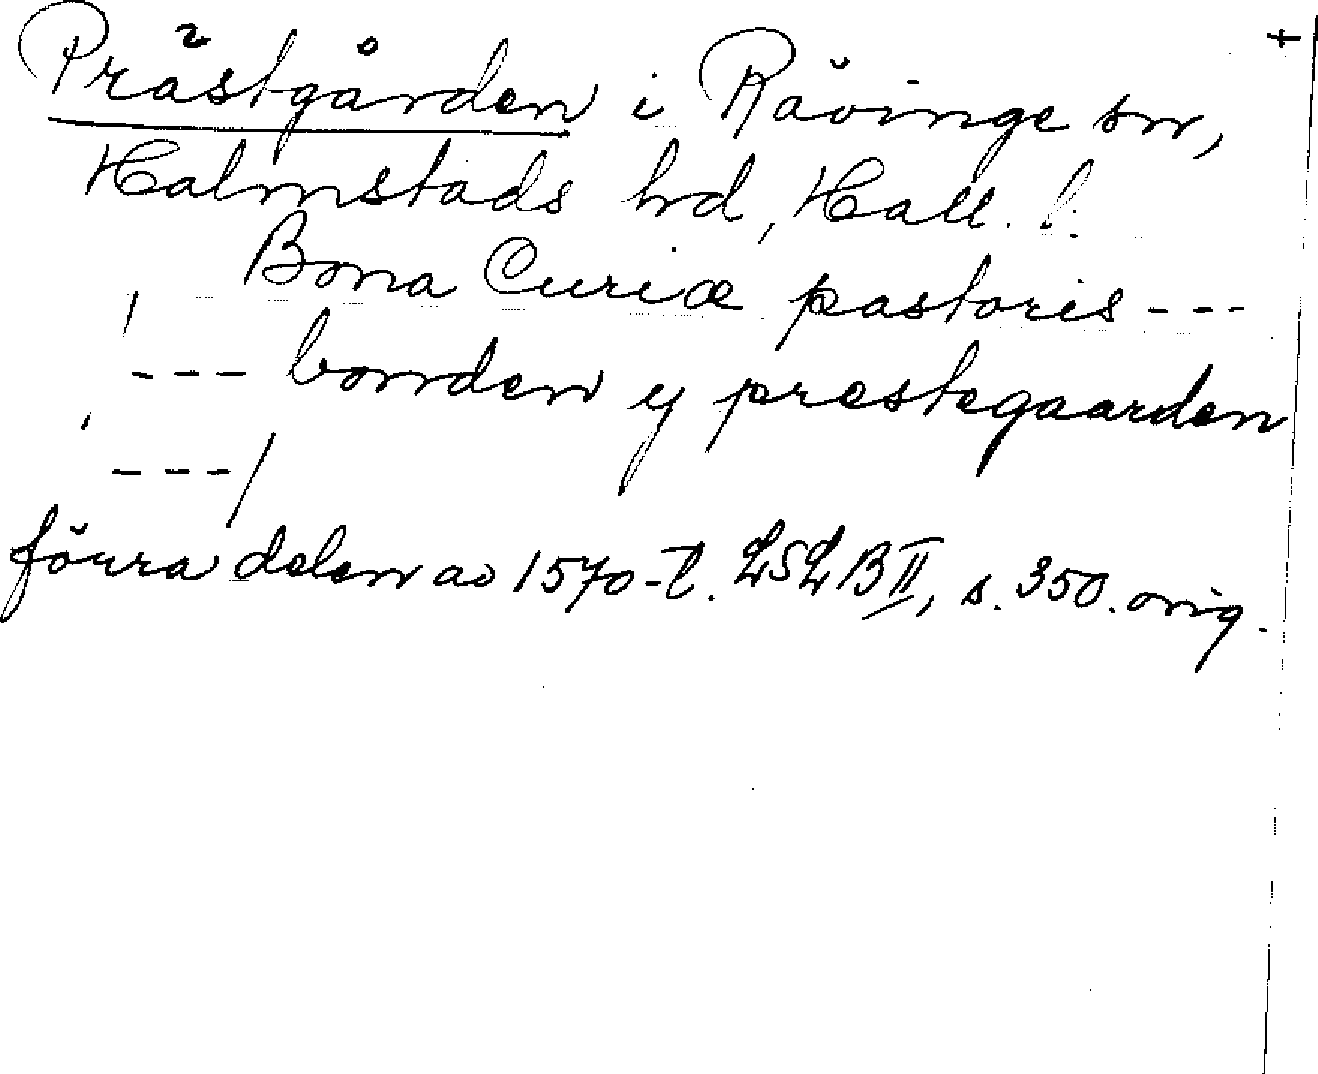 Prästgården i Råvinge sn,
Halmstads hd, Hall. l.
Bona Curiæ pastoris ---
/--- bonden y prestegaarden
---/
förra delen av 1570-t. LSLB II, s. 350. orig.